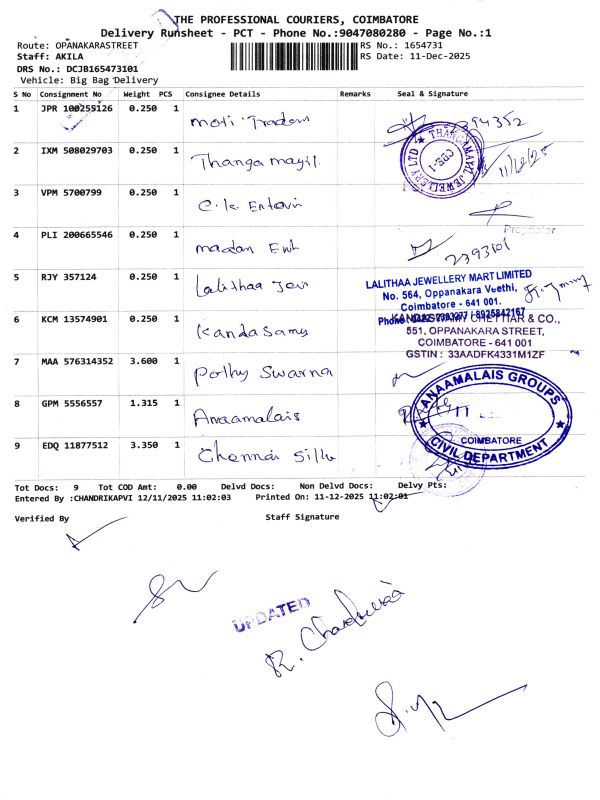 THE PROFESSIONAL COURIERS, COIMBATORE
Delivery Runsheet - PCT - Phone No.:9047080280 - Page No.:1
Route: OPANAKARASTREET
RS No.: 1654731
Staff: AKILA
RS Date: 11-Dec-2025
DRS No.: DCJB165473101
Vehicle: Big Bag Delivery
S No Consignment No Weight PCS Consignee Details Remarks Seal & Signature
1 JPR 100255126 0.250 1 Moti Traders 394352
2 IXM 508029703 0.250 1 Thanga mayil
THANGAMAYIL JEWELLERY LTD
CDE-1
11/12/25
3 VPM 5700799 0.250 1 C.K. Entori
Proprietor
4 PLI 200665546 0.250 1 madan Ent 2393101
5 RJY 357124 0.250 1 Lalithaa Jew
LALITHAA JEWELLERY MART LIMITED
No. 564, Oppanakara Veethi,
Coimbatore - 641 001.
6 KCM 13574901 0.250 1 Kandasamy
KANDASWAMY CHETTIAR & CO.,
551, OPPANAKARA STREET,
COIMBATORE - 641 001
GSTIN : 33AADFK4331M1ZF
7 MAA 576314352 3.600 1 Pothy Swarna
8 GPM 5556557 1.315 1 Anaamalais
ANAAMALAIS GROUPS
COIMBATORE
CIVIL DEPARTMENT
9 EDQ 11877512 3.350 1 Chennai Silks
Tot Docs: 9 Tot COD Amt: 0.00 Delvd Docs: Non Delvd Docs: Delvy Pts:
Entered By :CHANDRIKAPVI 12/11/2025 11:02:03 Printed On: 11-12-2025 11:02:01
Verified By Staff Signature
UPDATED